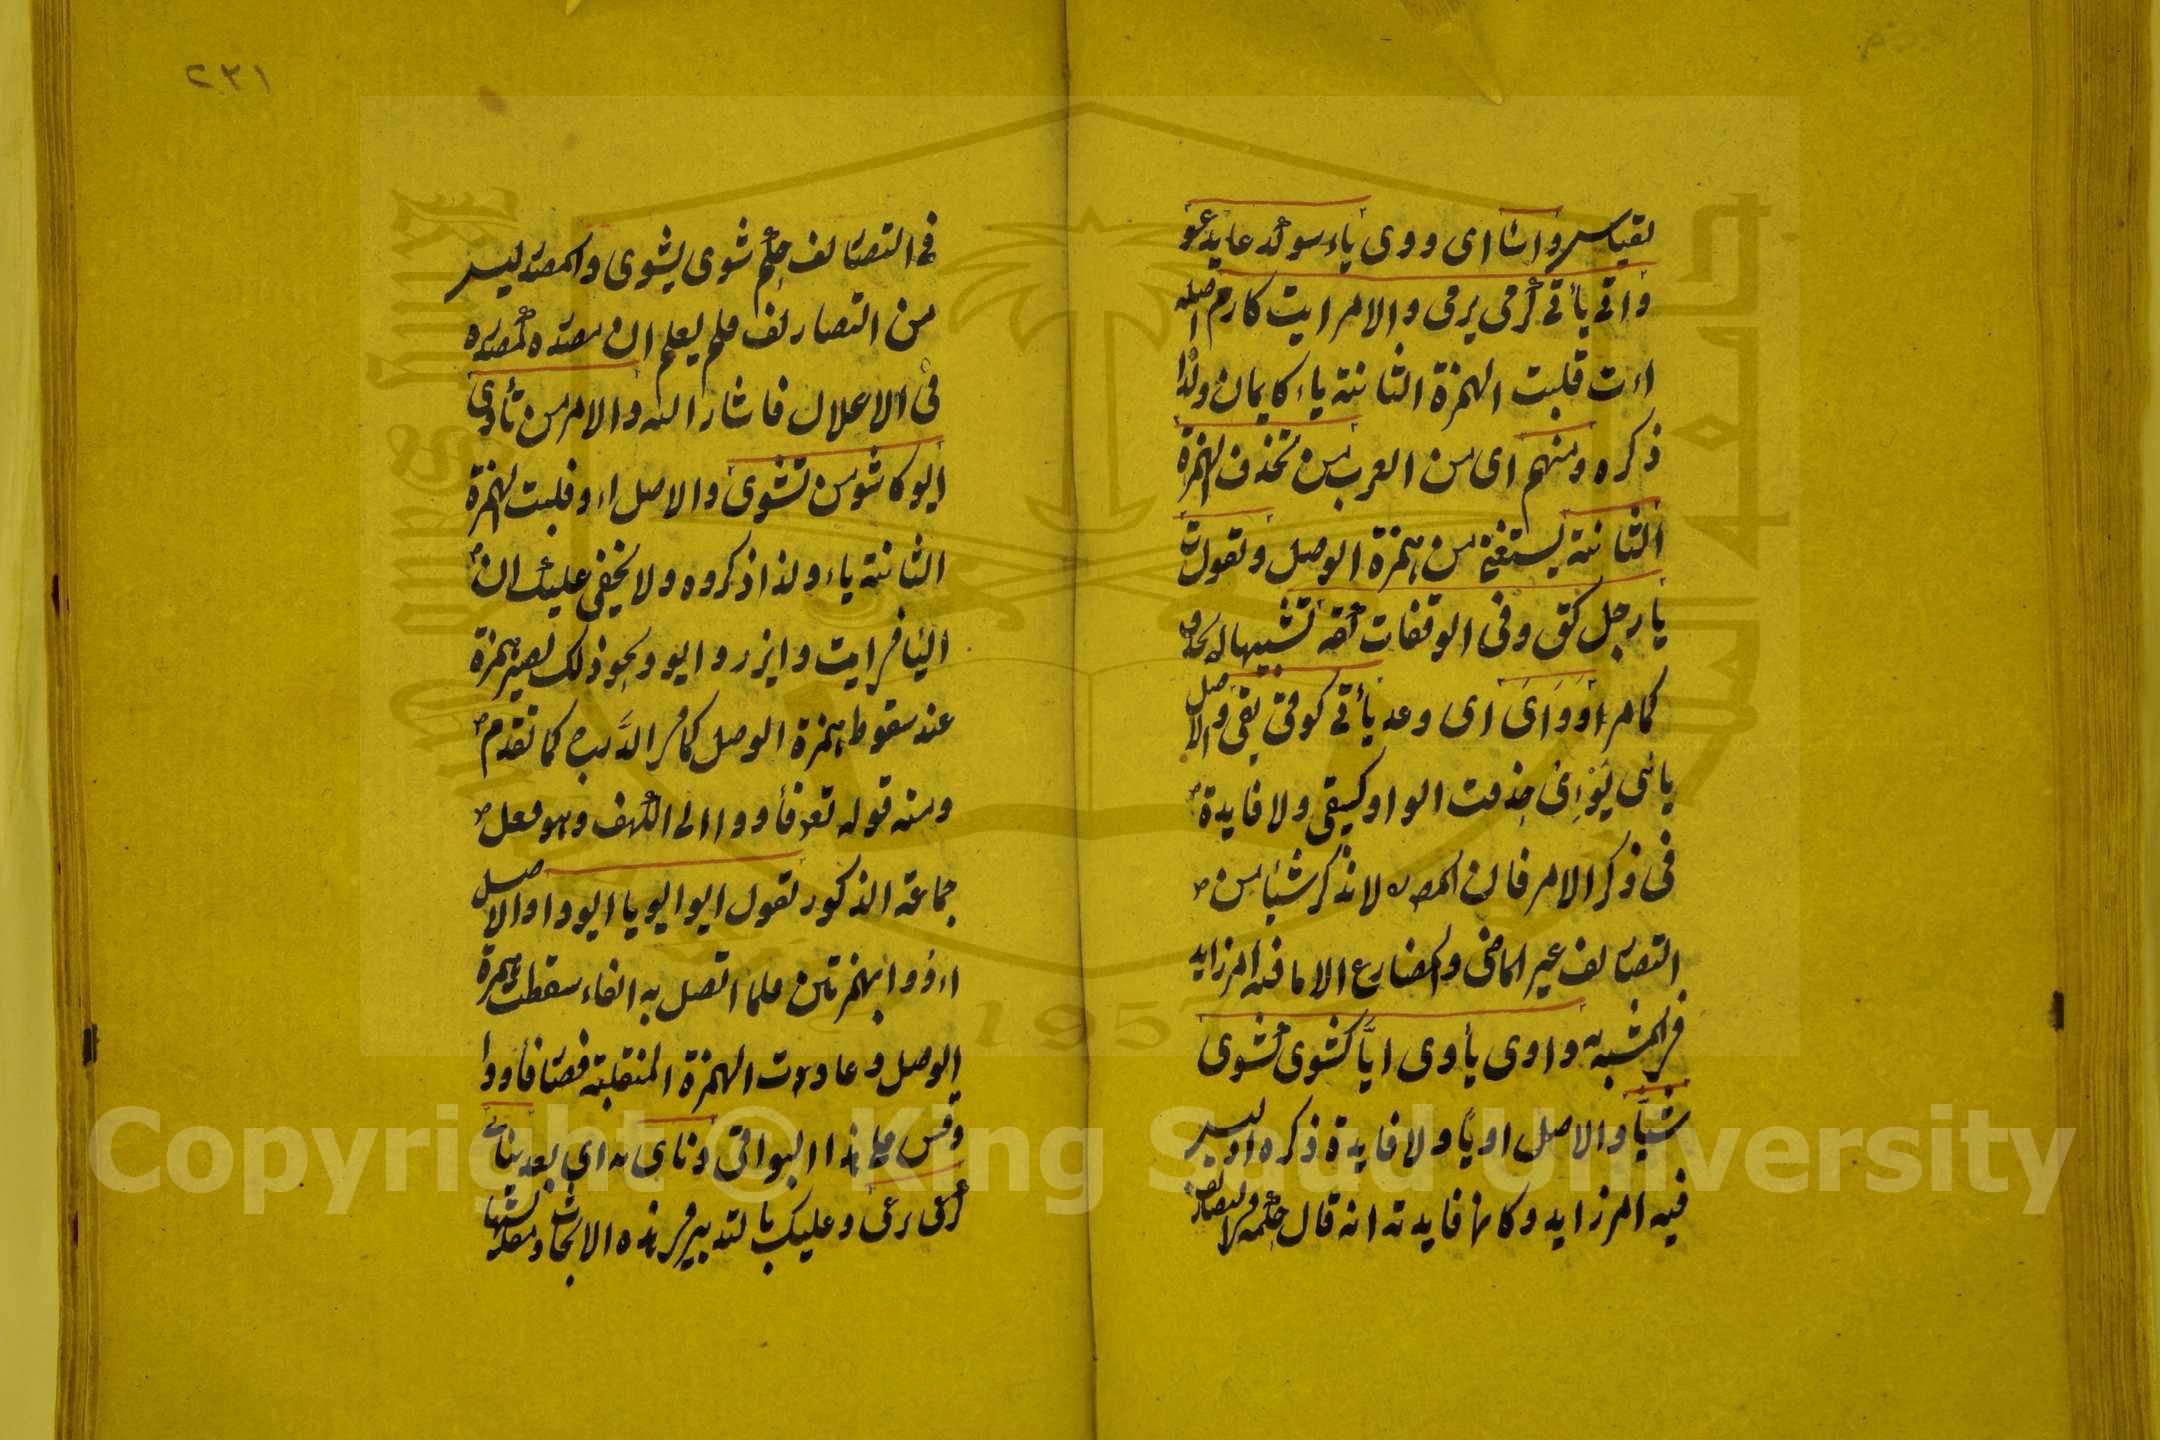 لقياس واشار اى ووى ياء سوكد عايدعو
واتى يأتى كرمى يرمى والامر ايت كارم اصله
اءت قلبت الهمزة الثانية ياء كايمان ولذا
ذكره ومنهم اى من العرب من تحذف الهمزة
الثانية يستغنى من همزة الوصل وتقول ت
يا رجل كق وفى الوقفات كقه تشبيها له بخذ
كما مر ووأى اى وعد يأتى كوقى يقى والاصل
يائى يوإى حذفت الواو كيقى ولا فايدة
فى ذكر الامر فان المص لا نذكر شيئا من
التصاريف غير الماضى والمضارع الا ما فيه امر زايد
فى المشبه به واوى يأوى ايا كشوى يشوى
شيا والاصل اويا ولا فايدة ذكره اذ ليس
فيه امر زايد وكان فايدته انه قال حكمه والتصاريف لا
٢٣١
فى التصاريف حكم شوى يشوى والمصدر ليس
من التصاريف فلم يعلم ان مصدره كمصدره
فى الاعلال فاشار اليه والامر من تأوى
ايو كاشو من تشوى والاصل اءو قلبت الهمزة
الثانية ياء ولذا ذكروه ولا يخفى عليك ان
اليا فى ايت وايزر وايو ونحو ذلك تصير همزة
عند سقوط همزة الوصل كما مر الدرب كما تقدم
ومنه قوله تعر فأووا الى الكهف وهو فعل
جماعة الذكور تقول ايو ايويا ايووا والاصل
اءووا بهمزتين فلما اتصل به الفاء سقطت همزة
الوصل وعاودت الهمزة المنقلبة فصار فأووا
وقس على هذا البواقى ونأى نه اى بعد ينأى
كرعى يرعى وعليك بالتدبر فى هذه الابحاث ومقايستها
Copyright © King Saud University
King Saud University
جامعة الملك سعود
1957